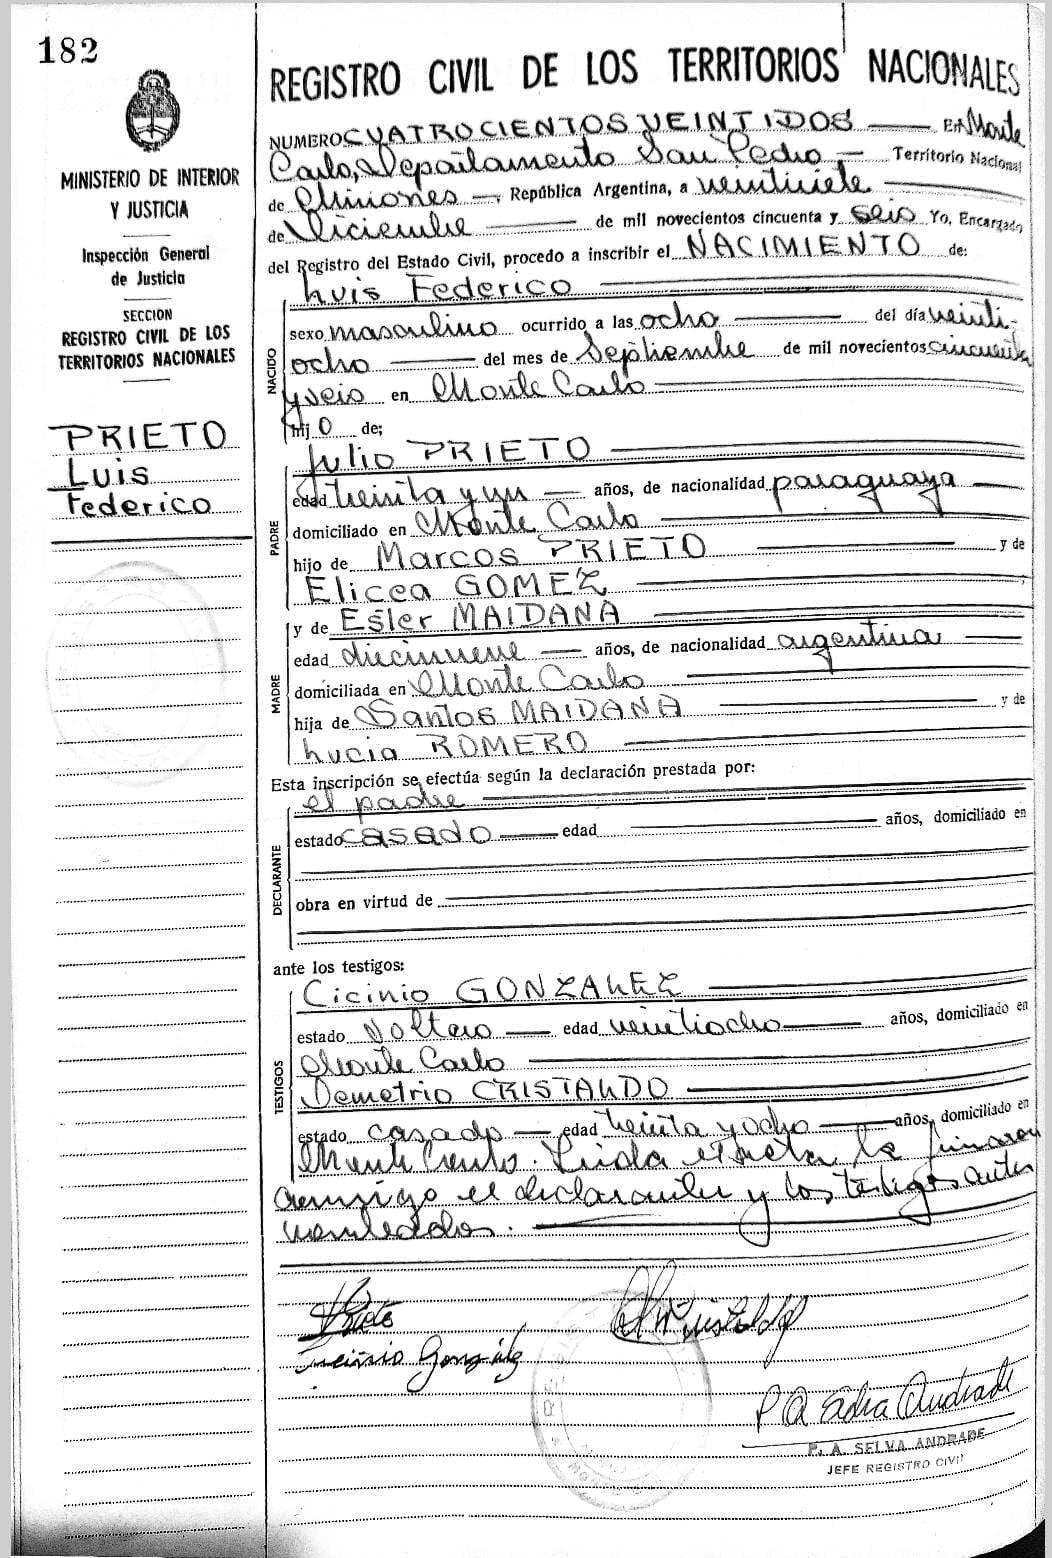 182
MINISTERIO DE INTERIOR
Y JUSTICIA
Inspección General
de Justicia
SECCION
REGISTRO CIVIL DE LOS
TERRITORIOS NACIONALES
PRIETO
Luis
Federico
REGISTRO CIVIL DE LOS TERRITORIOS NACIONALES
NUMERO CUATROCIENTOS VEINTIDOS En Monte
Carlo, Departamento San Pedro, Territorio Nacional
de Misiones República Argentina, a veintisiete
de Diciembre de mil novecientos cincuenta y seis Yo, Encargado
del Registro del Estado Civil, procedo a inscribir el NACIMIENTO de:
NACIDO
Luis Federico
sexo masculino ocurrido a las ocho del día veinti-
ocho del mes de Septiembre de mil novecientos cincuenta
y seis en Monte Carlo
hij o de;
PADRE
Julio PRIETO
edad treinta y un años, de nacionalidad paraguaya
domiciliado en Monte Carlo
hijo de Marcos PRIETO y de
Elicea GOMEZ
MADRE
y de Ester MAIDANA
edad diecinueve años, de nacionalidad argentina
domiciliada en Monte Carlo
hija de Santos MAIDANA y de
Lucia ROMERO
Esta inscripción se efectúa según la declaración prestada por:
DECLARANTE
el padre
estado casado edad años, domiciliado en
obra en virtud de
ante los testigos:
TESTIGOS
Cicinio GONZALEZ
estado soltero edad veintiocho años, domiciliado en
Monte Carlo
Demetrio CRISTALDO
estado casado edad treinta y ocho años, domiciliado en
Monte Carlo. Leida el acta, la firmaron
conmigo el declarante y los testigos antes
nombrados.
Prieto
González
P A Selva Andrade
P. A. SELVA ANDRADE
JEFE REGISTRO CIVIL